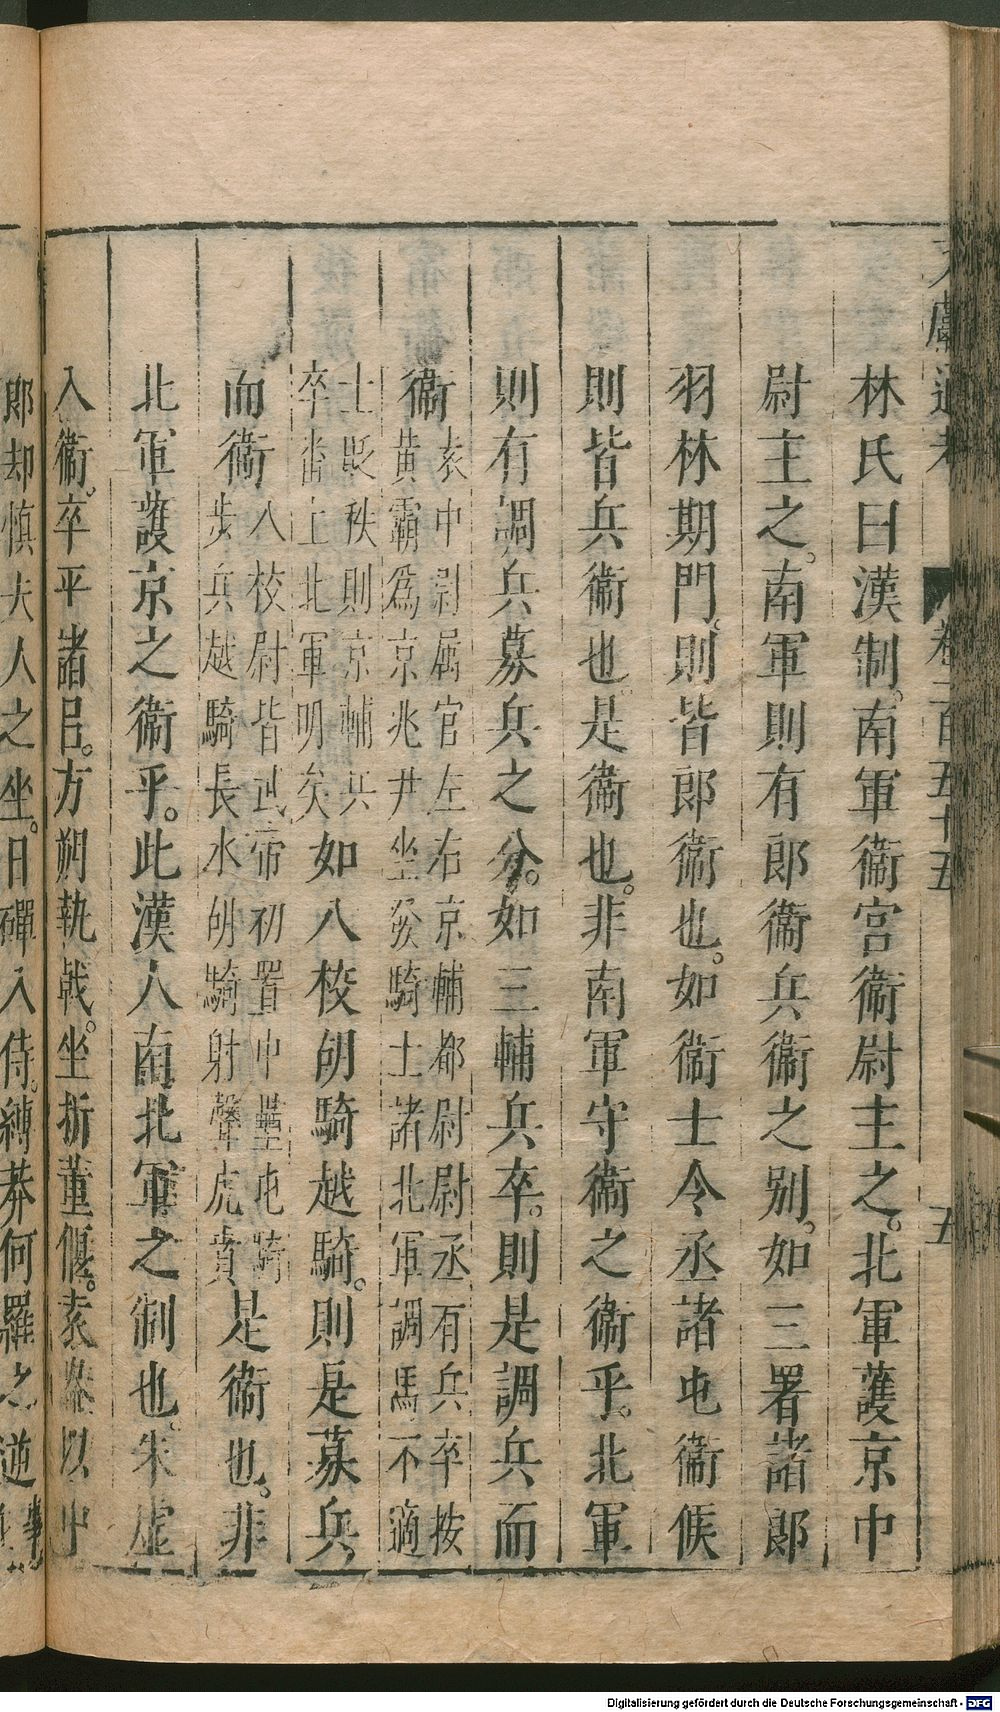 文獻通考 卷一百五十五 五
林氏曰漢制南軍衞宮衞尉主之。北軍護京中
尉主之。南軍則有郎衞兵衞之別。如三署諸郎
羽林期門。則皆郎衞也。如衞士令丞諸屯衞候
則皆兵衞也。是衞也。非南軍守衞之衞乎。北軍
則有調兵募兵之分。如三輔兵卒。則是調兵而
衞表中尉属官左右京輔都尉尉丞有兵卒按
黄霸為京兆尹坐發騎士詣北軍調馬不適
士貶秩則京輔兵
卒畨上北軍明矣如八校胡騎越騎。則是募兵
而衞八校尉皆武帝初置中壘屯騎
步兵越騎長水胡騎射聲虎賁是衞也。非
北軍護京之衞乎。此漢人南北軍之制也。朱虛
入衞。卒平諸呂。方朔執戟。坐折董偃。袁盎以中
郎却慎夫人之坐。日磾入侍。縛莽何羅之逆
Digitalisierung gefördert durch die Deutsche Forschungsgemeinschaft - DFG